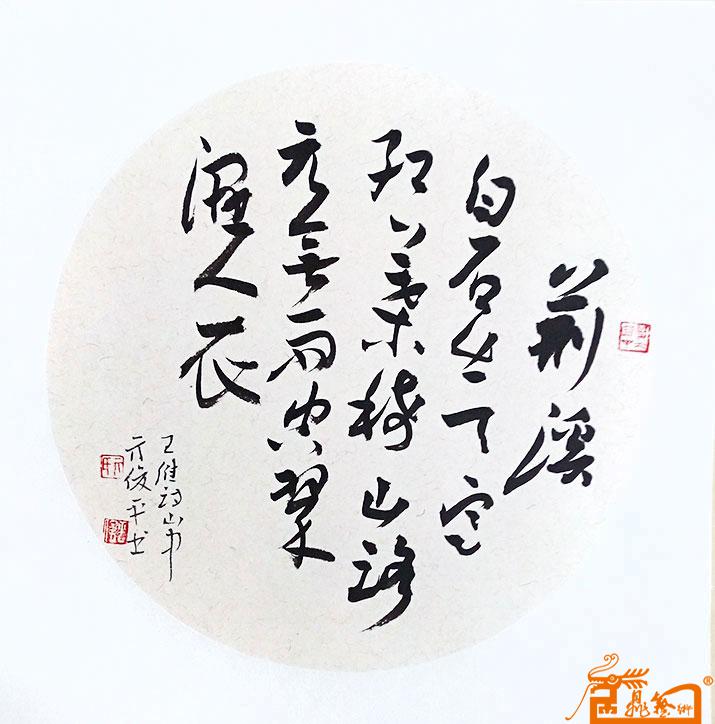 荆溪
白石出天寒
红葉稀山路
元無雨空翠
湿人衣
王維诗山中
亓俊平书